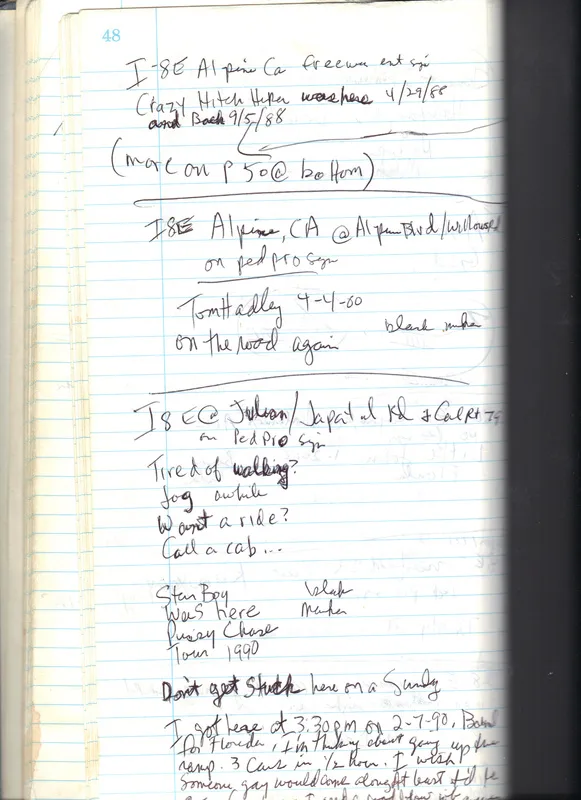 48
I-8E Alpine Ca freeway ent sign
Crazy Hitch Hiker was here 4/29/88
and Back 9/5/88
(more on p 50 @ bottom)
I8E Alpine, CA @ Alpine Blvd/Willows Rd
on ped pro sign
Tom Hadley 4-4-00
on the road again
black marker
I8 E@ Julian/Japatul Rd & Cal Rt 79
on Ped Pro sign
Tired of walking?
Jog awhile
Want a ride?
Call a cab...
Star Boy
black
Was here
marker
Pussy Chase
Tour 1990
Don't get Stuck here on a Sunday
I got here at 3:30 pm on 2-7-90, Bound
for Florida, I'm thinking about going up the
ramp. 3 Cars in 1/2 hour. I wish
someone gay would come along At least I'd be